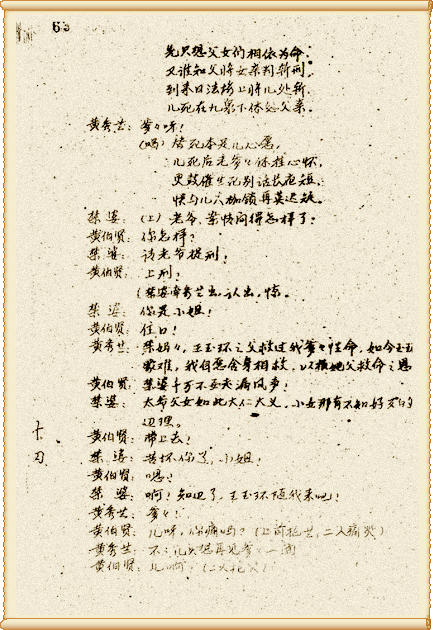 63
先只想父女们相依为命,
又谁知父将女亲判斩刑,
到来日法场上将儿处斩,
儿死在九泉下休恋父亲。
黄秀兰：爹々呀!
(唱) 替死本是儿心愿,
儿死后老爹々休挂心怀,
更鼓催生死别话长夜短,
快与儿上枷锁再莫迟疑。
禁婆：(上) 老爷,案情问得怎样了?
黄伯贤：你怎样?
禁婆：请老爷提刑!
黄伯贤：上刑!
(禁婆带秀兰出,认出,惊。
禁婆：你是小姐!
黄伯贤：住口!
黄秀兰：禁妈々,王玉环之父救过我爹々性命,如今玉玉
蒙难,我自愿舍身相救,以报她父救命之恩
黄伯贤：禁婆千万不要走漏风声!
禁婆：太爷父女如此大仁大义,小女那有不知好歹的
道理。
黄伯贤：带上去!
禁婆：苦坏你了,小姐!
黄伯贤：嗯?
禁婆：啊!知道了,王玉环随我来吧!
黄秀兰：爹々!
黄伯贤：儿呀,你痛吗?(上前抱兰,二人痛哭)
黄秀兰：不,儿只想再见爹々一面
黄伯贤：儿啊!(二人抱头)
十刀